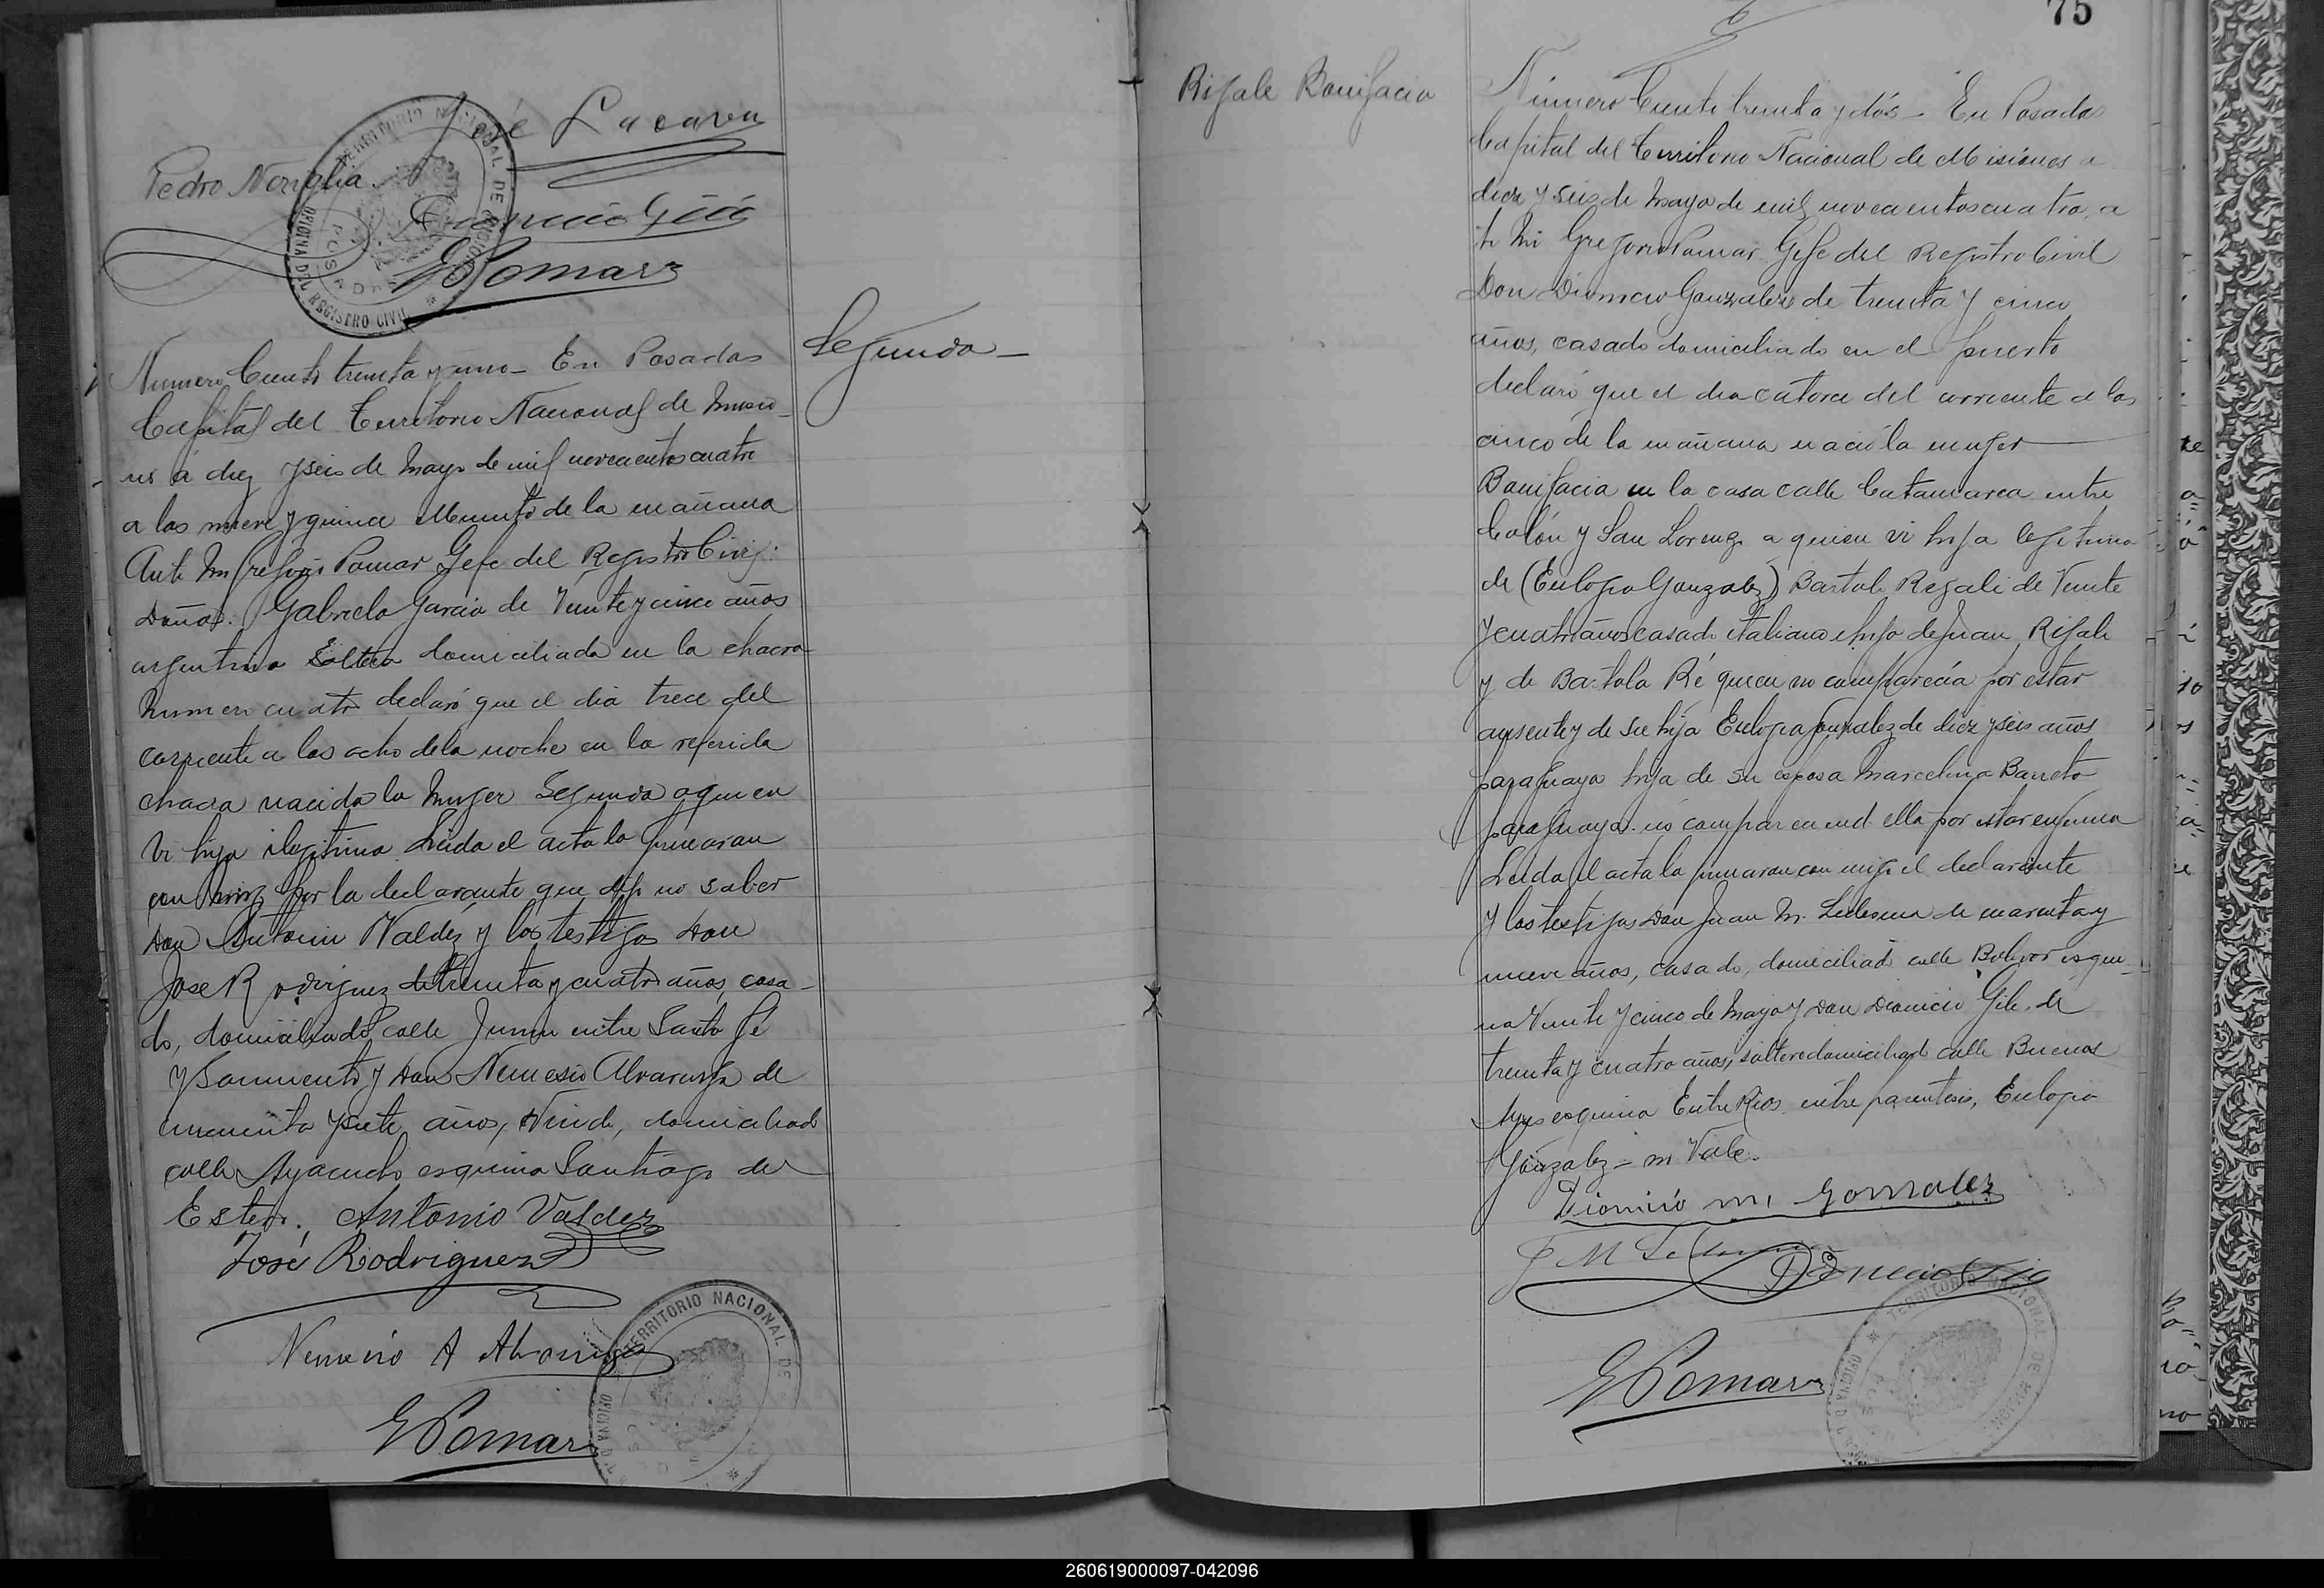 José Lacava
Pedro Noriglia
Dionicio Gili
GPomar
TERRITORIO NACIONAL DE MISIONES
OFICINA DEL REGISTRO CIVIL
POSADAS
Numero Ciento treinta y uno - En Posadas
Capital del Territorio Nacional de Misio-
nes á diez y seis de Mayo de mil novecientos cuatro
a las nueve y quince Minutos de la mañana
Ante Mi Gregorio Pomar Gefe del Registro Civil:
Doña: Gabriela Garcia de Veinte y cinco años
argentina Soltera domiciliada en la chacra
Numero cuatro declaró que el dia trece del
corriente a las ocho de la noche en la referida
chacra nacido la Muger Segunda a quien
Vi hija ilegitima Leida el acta la firmaran
con migo por la declarante que dijo no saber
Don Antonio Valdéz y los testigos Don
Jose Rodriguez de treinta y cuatro años, casa-
do, domiciliado calle Junin entre Santa Fé
y Sarmiento y Don Nemesio Alvarenga de
cincuenta y siete años, Viudo, domiciliado
calle Ayacucho esquina Santiago del
Estero. Antonio Valdez
José Rodriguez
Nemesio A Alvarenga
GPomar
TERRITORIO NACIONAL DE
OFICINA D
Segunda -
75
Rifale Bonifacia
Número Ciento treinta y dós - En Posadas
Capital del Territorio Nacional de Misiones a
diez y seis de Mayo de mil novecientos cuatro, an
te Mi Gregorio Pomar Gefe del Registro Civil
Don Dionicio Gonzalez de treinta y cinco
años, casado domiciliado en el puerto
declaró que el dia catorce del corriente a las
cinco de la mañana nació la muger
Bonifacia en la casa calle Catamarca entre
Colón y San Lorenzo a quien vi hija legitima
de (Eulogia Gonzalez) Bartolo Regali de Veinte
y cuatro años casado italiano hijo de Juan Rifale
y de Bartola Ré quien no comparecia por estar
ausente y de su hija Eulogia Gonzalez de diez y seis años
paraguaya hija de su esposa Marcelina Barreto
paraguaya. no compareciend ella por estar enferma
Leida el acta la firmaran con migo el declarante
y los testigos Don Juan M. Ledesma de cuarenta y
nueve años, casado, domiciliado calle Bolivar esqui-
na Veinte y cinco de Mayo y Don Dionicio Gili de
treinta y cuatro años, soltero domiciliado calle Buenos
Ayres esquina Entre Rios entre parentesis, Eulogia
Gonzalez - no Vale.
Dionicio M. Gonzalez
J M Ledesma
Dionicio Gili
GPomar
TERRITORIO NACIONAL DE MISIONES
OFICINA D
260619000097-042096